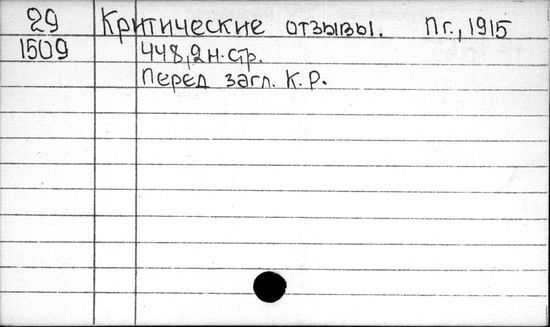 29 Критические отзывы. Пг., 1915
1509 448,2н.стр.
Перед загл. К.Р.